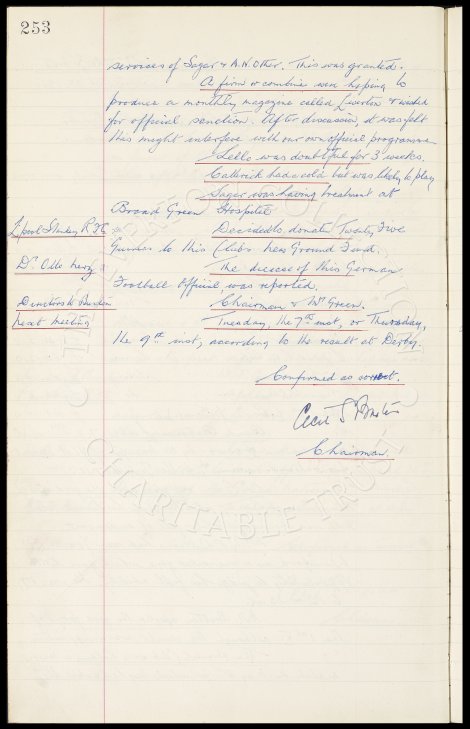 253
services of Sagar & A.N. Other. This was granted.
A firm or combine were hoping to
produce a monthly magazine called Liverton & wished
for official sanction. After discussion, it was felt
this might interfere with our own official programme
Lello was doubtful for 3 weeks.
Catterick had a cold but was likely to play
Sagar was having treatment at
Broad Green Hospital
L'pool Stanley R.F.C.
Decided to donate Twenty Five
Guineas to this Clubs New Ground Fund.
Dr. Otto Nerz
The decease of this German
Football Official was reported.
Directors to Burden
Chairman & Mr Green.
next meeting
Tuesday, the 7th inst, or Thursday,
the 9th inst, according to the result at Derby.
Confirmed as correct.
Cecil S Baxter
Chairman.
CHARITABLE TRUST